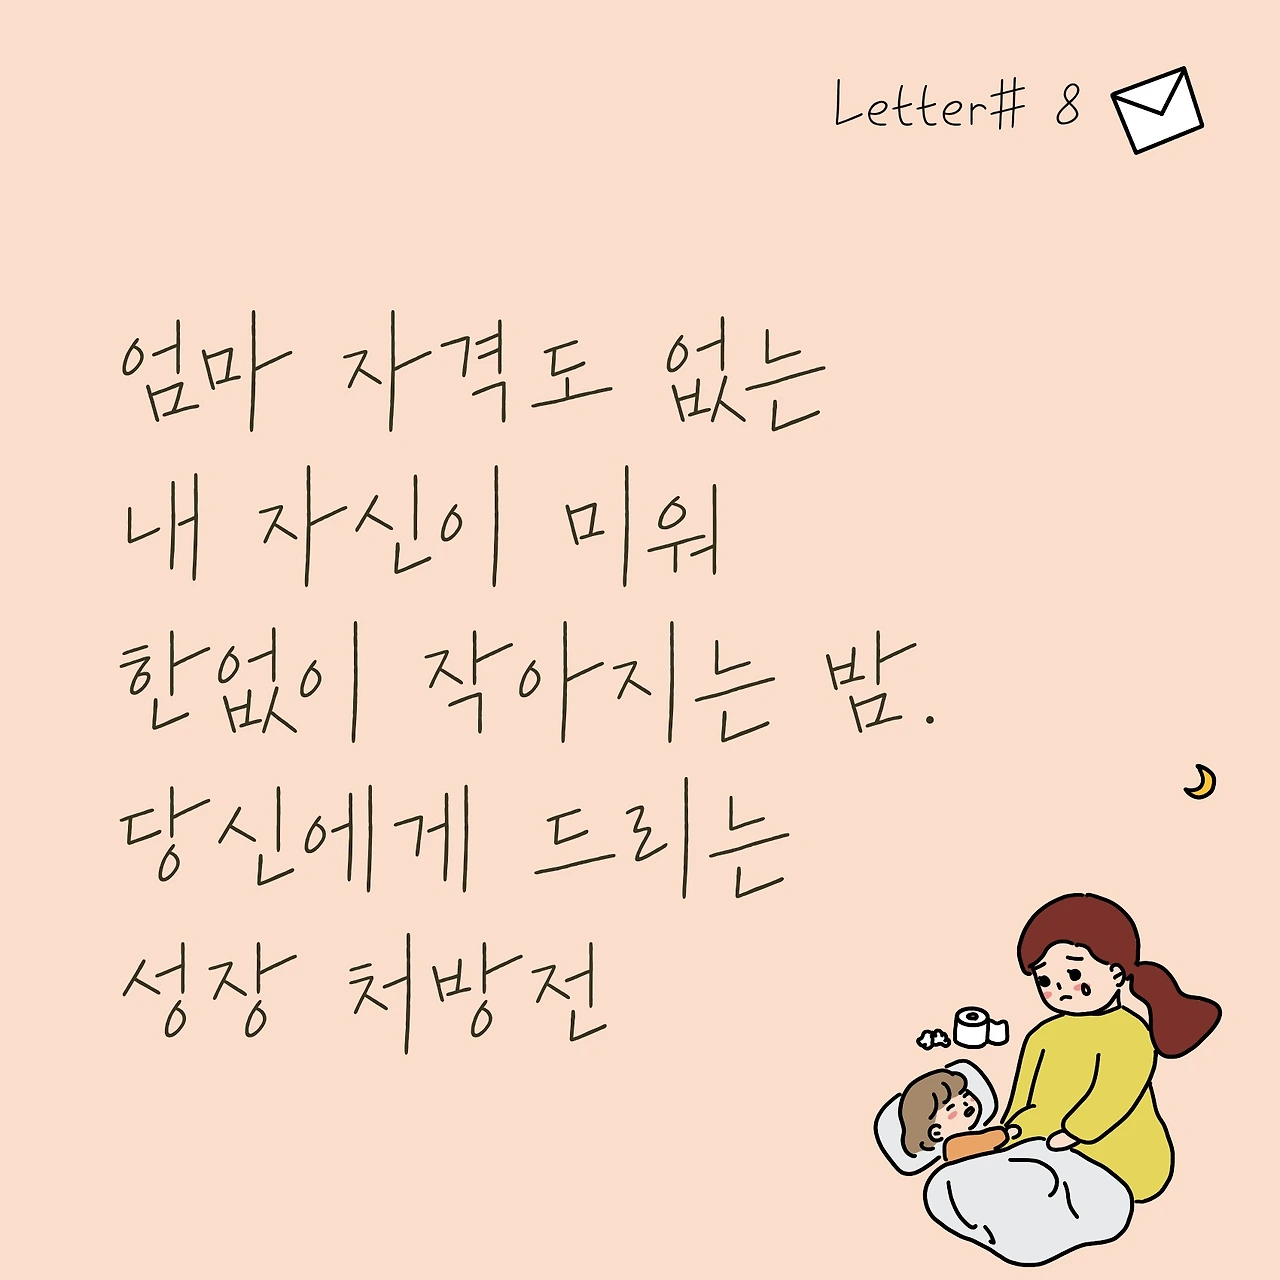 Letter# 8
엄마 자격도 없는
내 자신이 미워
한없이 작아지는 밤.
당신에게 드리는
성장 처방전